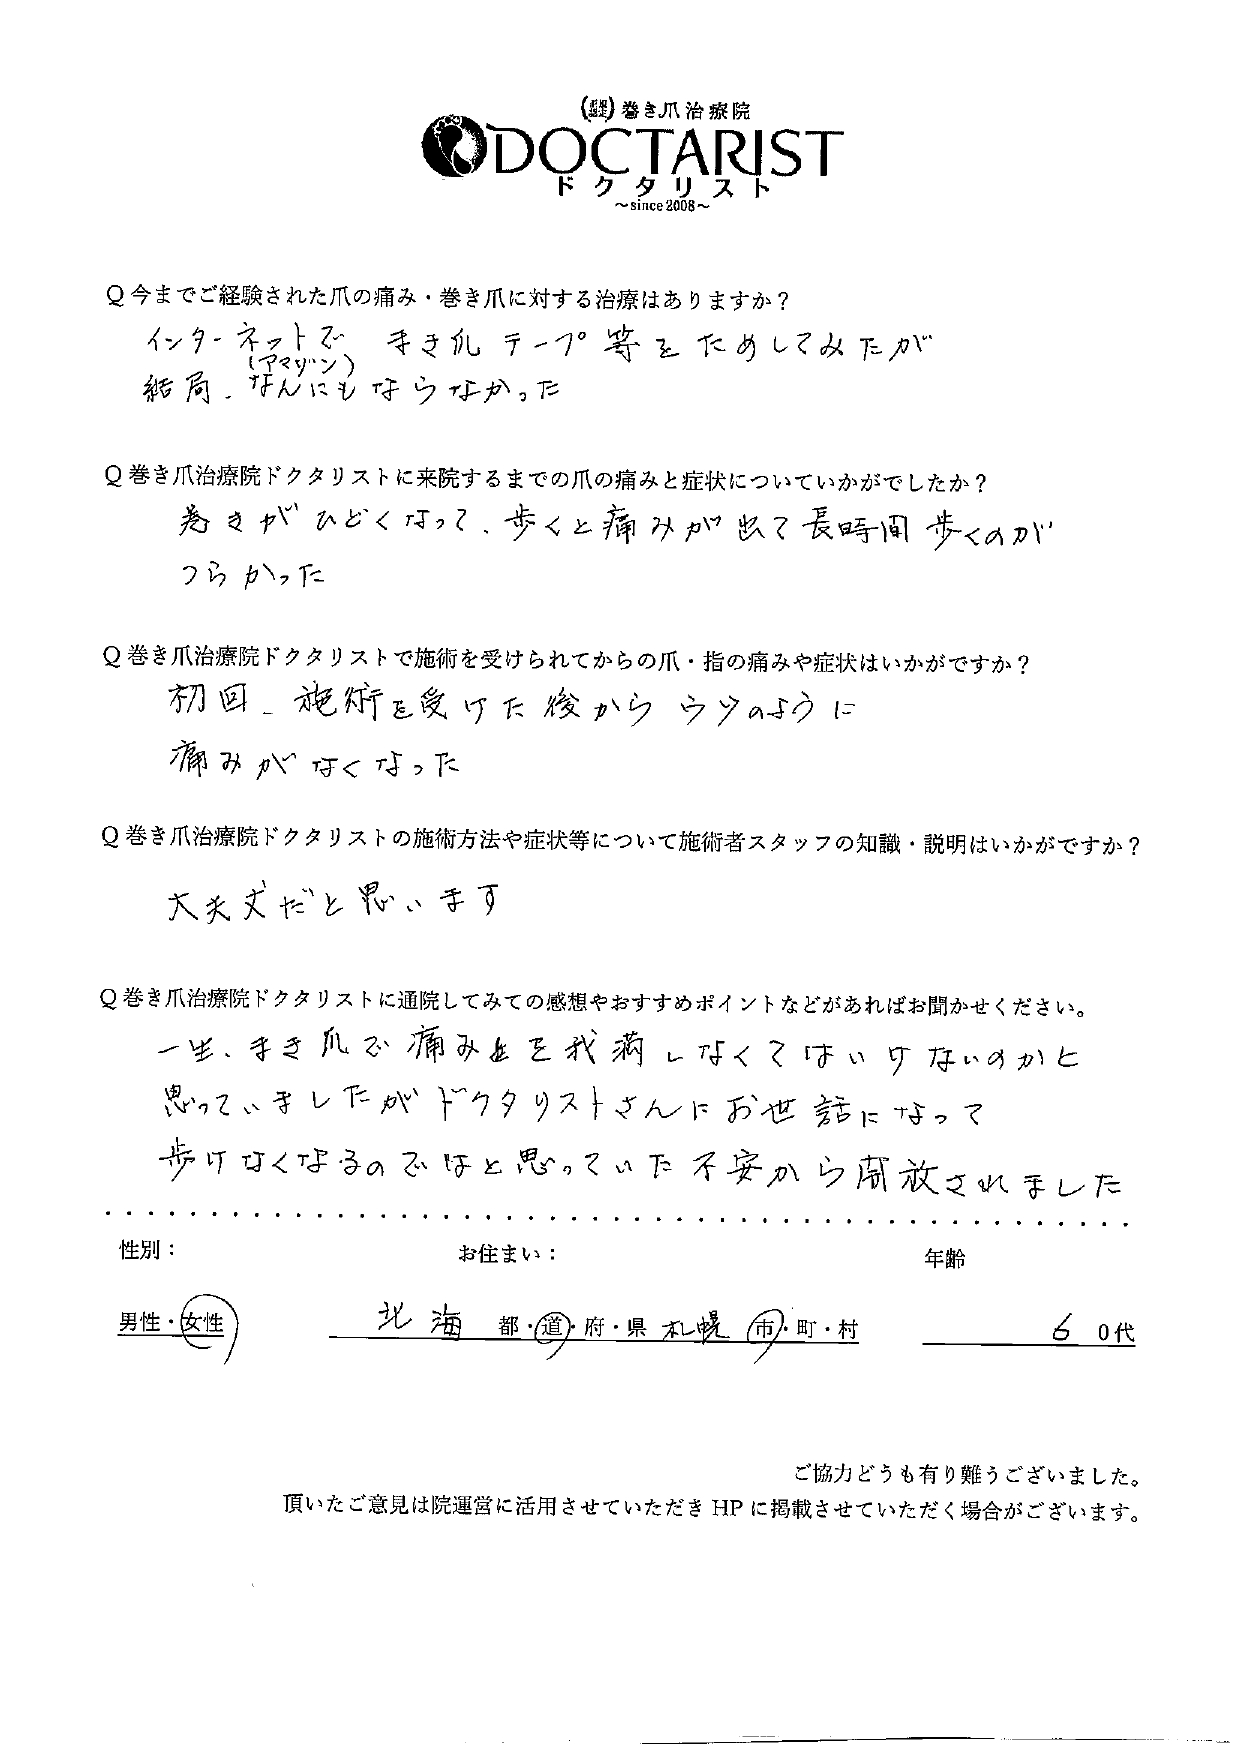 巻き爪治療院
DOCTARIST
ドクタリスト
～since2008～
Q 今までご経験された爪の痛み・巻き爪に対する治療はありますか？
インターネットで まき爪 テープ等をためしてみたが
(アマゾン)
結局、なんにもならなかった
Q 巻き爪治療院ドクタリストに来院するまでの爪の痛みと症状についていかがでしたか？
巻きがひどくなって、歩くと痛みが出て長時間歩くのが
つらかった
Q 巻き爪治療院ドクタリストで施術を受けられてからの爪・指の痛みや症状はいかがですか？
初回、施術を受けた後から ウソのように
痛みがなくなった
Q 巻き爪治療院ドクタリストの施術方法や症状等について施術者スタッフの知識・説明はいかがですか？
大夫丈だと思います
Q 巻き爪治療院ドクタリストに通院してみての感想やおすすめポイントなどがあればお聞かせください。
一生、まき爪で痛みを我満しなくてはいけないのかと
思っていましたがドクタリストさんにお世話になって
歩けなくなるのではと思っていた不安から開放されました
性別： お住まい： 年齢
男性・女性 北海 都・道・府・県 札幌 市・町・村 6 0代
ご協力どうも有り難うございました。
頂いたご意見は院運営に活用させていただき HP に掲載させていただく場合がございます。